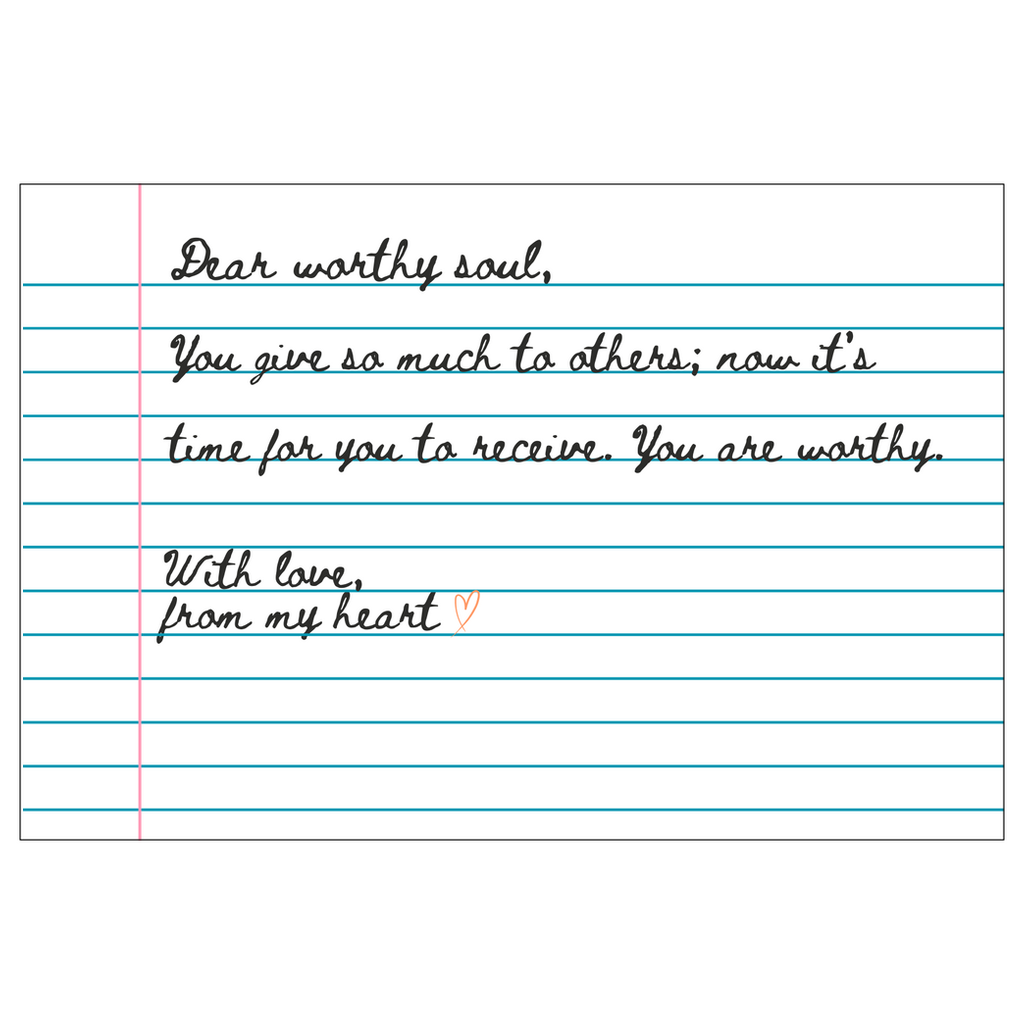 Dear worthy soul,
You give so much to others; now it's
time for you to receive. You are worthy.
With love,
from my heart